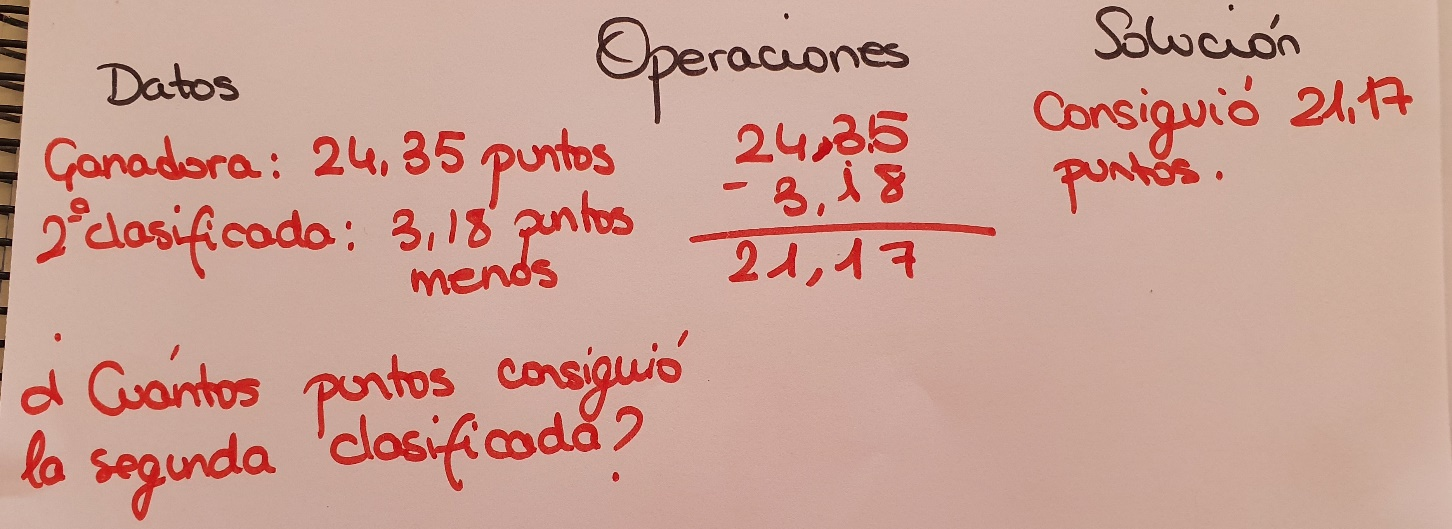 Datos
Ganadora: 24,35 puntos
2ª clasificada: 3,18 puntos
menos
¿Cuántos puntos consiguió
la segunda clasificada?
Operaciones
24,35
- 3,18
21,17
Solución
Consiguió 21,17
puntos.